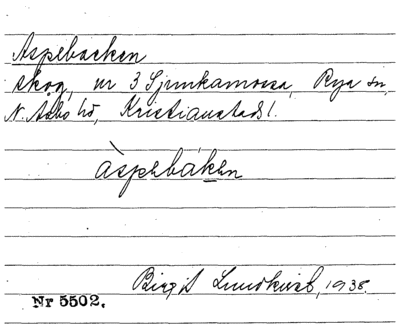 Aspebacken
skog, nr 3 Sjunkamossa, Rya sn,
N. Åsbo hd, Kristianstads l.
àspebáken
Birgit Lundkvist, 1938.
Nr 5502.